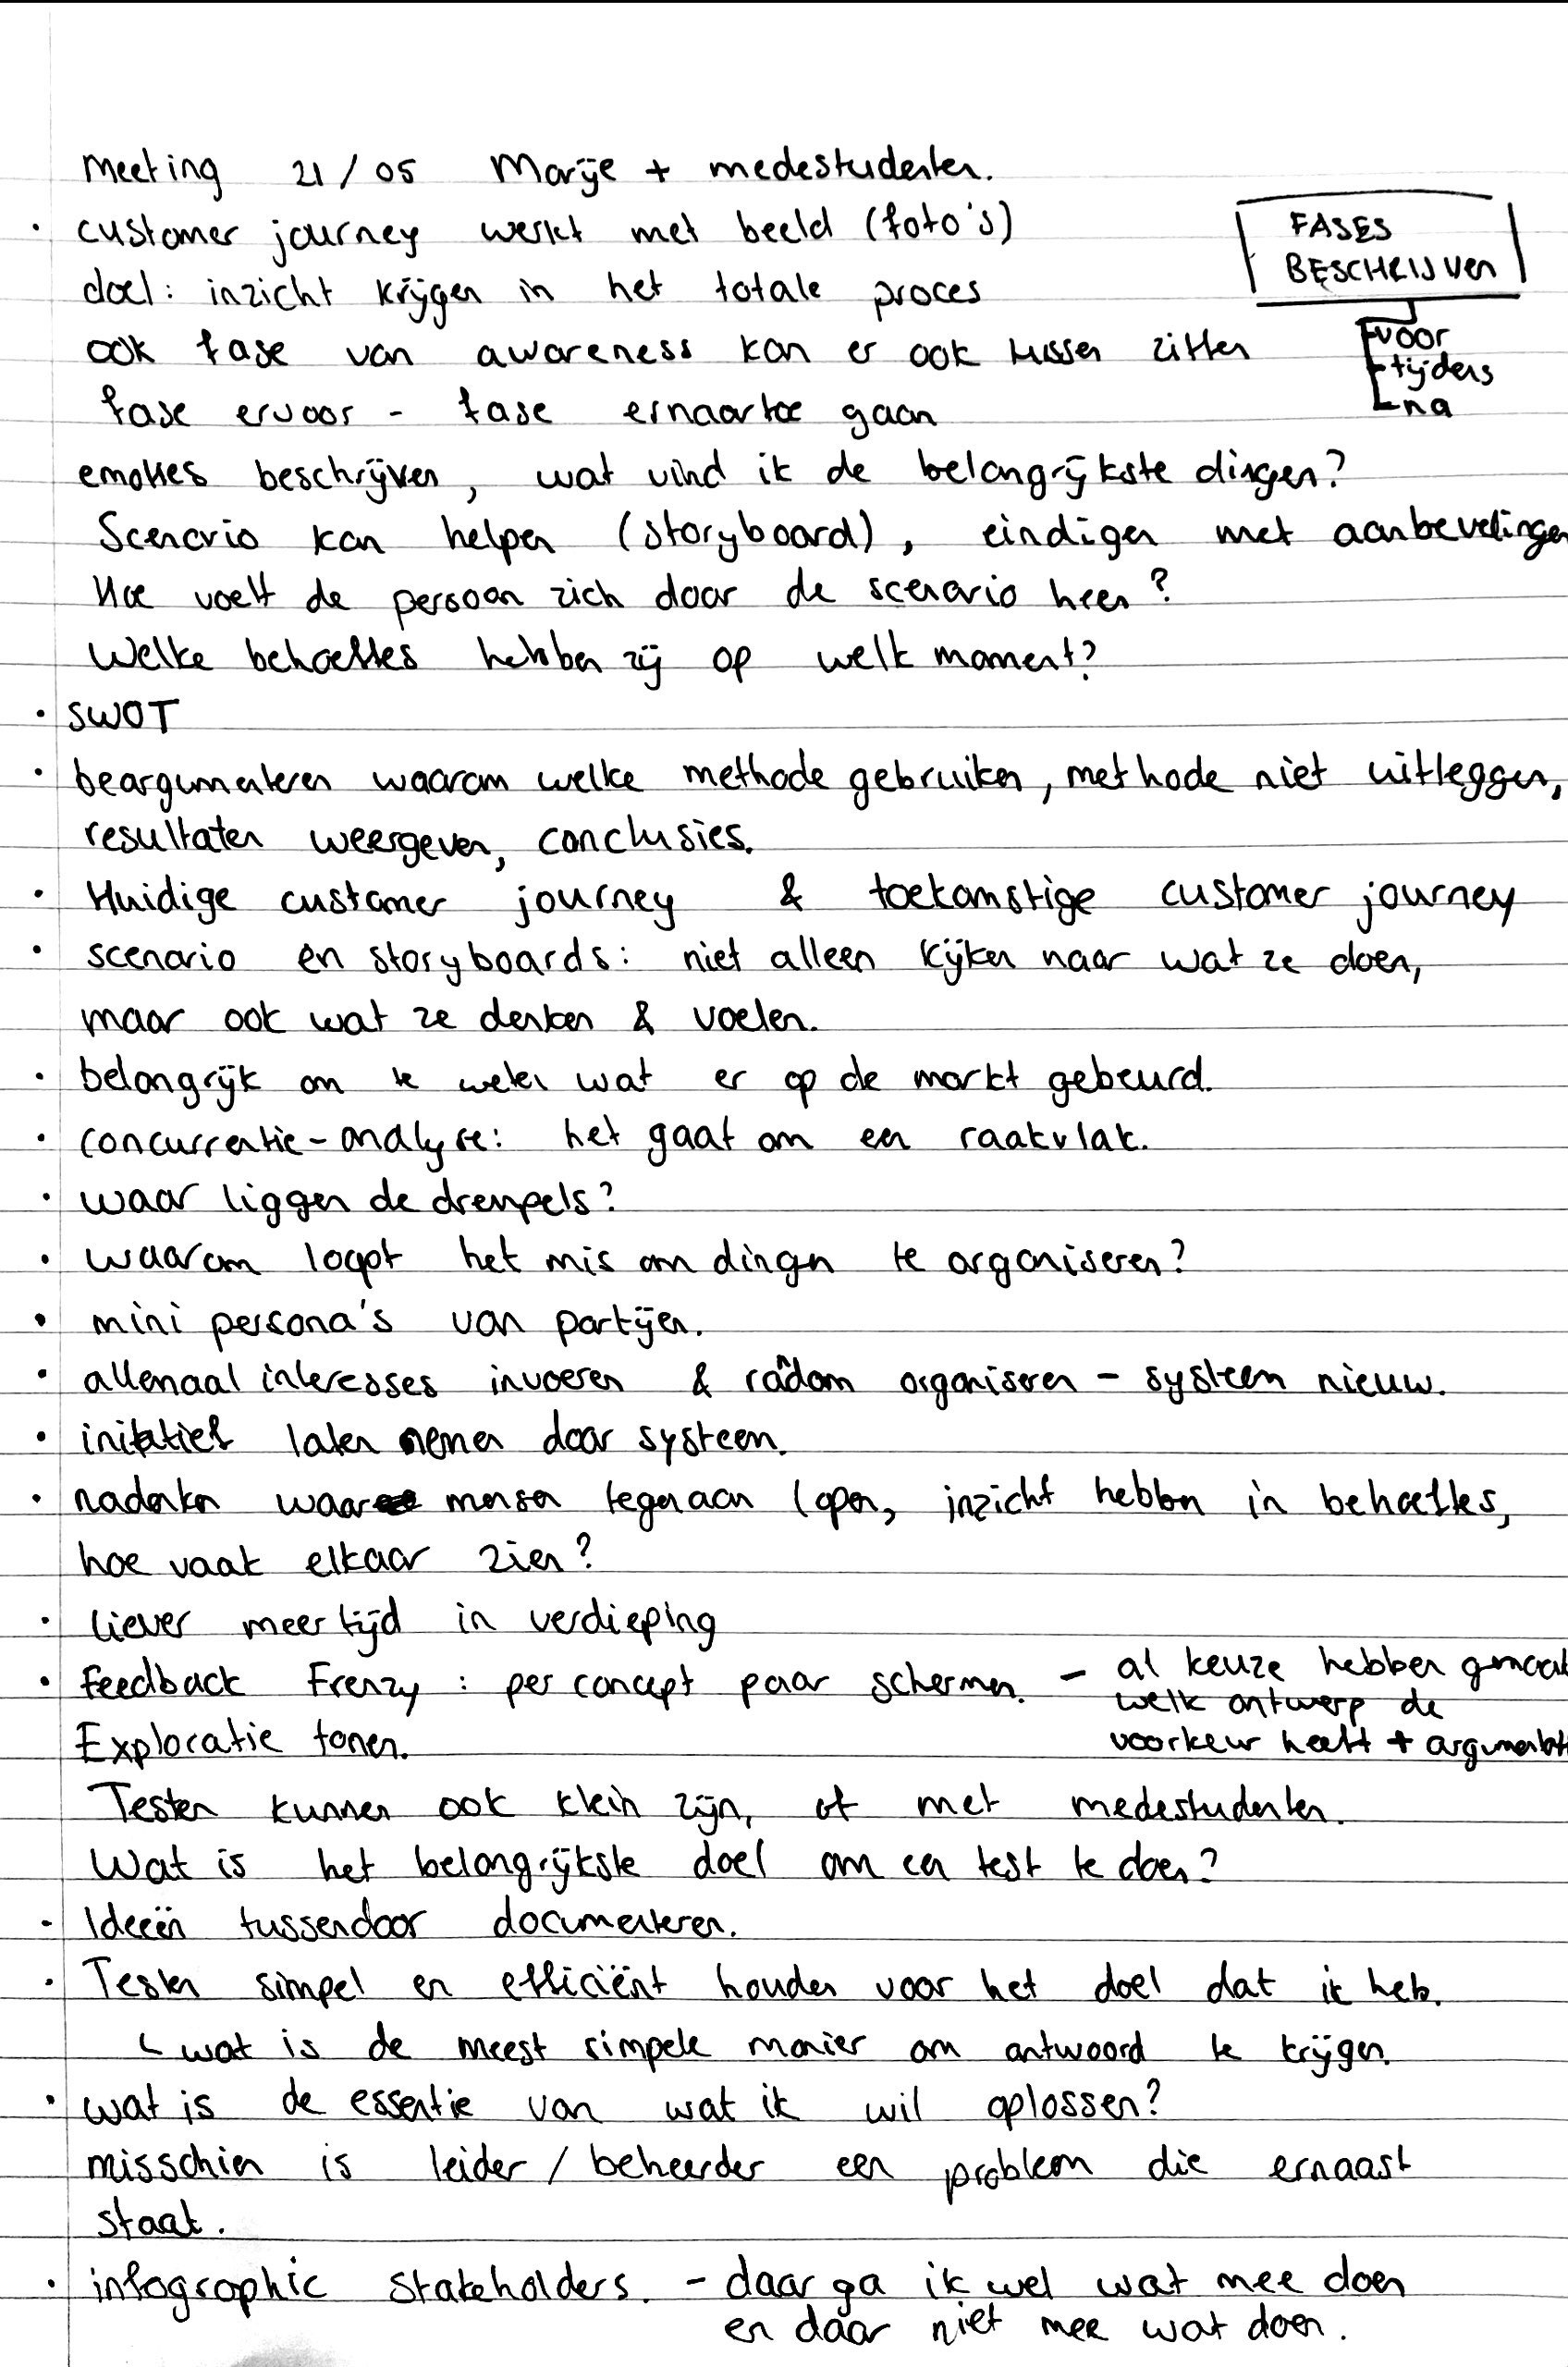 meeting 21/05 Marije + medestudenten.
• customer journey werkt met beeld (foto's)
FASES
BESCHRIJVEN
doel: inzicht krijgen in het totale proces
ook fase van awareness kan er ook tussen zitten
voor
tijdens
na
fase ervoor - fase ernaartoe gaan
emoties beschrijven, wat vind ik de belangrijkste dingen?
Scenario kan helpen (storyboard), eindigen met aanbevelingen
Hoe voelt de persoon zich door de scenario heen?
Welke behoeftes hebben zij op welk moment?
• SWOT
• beargumenteren waarom welke methode gebruiken, methode niet uitleggen,
resultaten weergeven, conclusies.
• Huidige customer journey & toekomstige customer journey
• scenario en storyboards: niet alleen kijken naar wat ze doen,
maar ook wat ze denken & voelen.
• belangrijk om te weten wat er op de markt gebeurd.
• concurrentie-analyse: het gaat om een raakvlak.
• waar liggen de drempels?
• waarom loopt het mis om dingen te organiseren?
• mini persona's van partijen.
• allemaal interesses invoeren & random organiseren - systeem nieuw.
• initiatief laten nemen door systeem.
• nadenken waar mensen tegenaan lopen, inzicht hebben in behoeftes,
hoe vaak elkaar zien?
• liever meer tijd in verdieping
• Feedback Frenzy: per concept paar schermen. - al keuze hebben gemaakt
welk ontwerp de
Exploratie tonen.
voorkeur heeft + argumentatie
Testen kunnen ook klein zijn, of met medestudenten.
Wat is het belangrijkste doel om een test te doen?
• Ideeën tussendoor documenteren.
• Testen simpel en efficiënt houden voor het doel dat ik heb.
↳ wat is de meest simpele manier om antwoord te krijgen.
• wat is de essentie van wat ik wil oplossen?
misschien is leider / beheerder een probleem die ernaast
staat.
• infographic stakeholders. - daar ga ik wel wat mee doen
en daar niet mee wat doen.